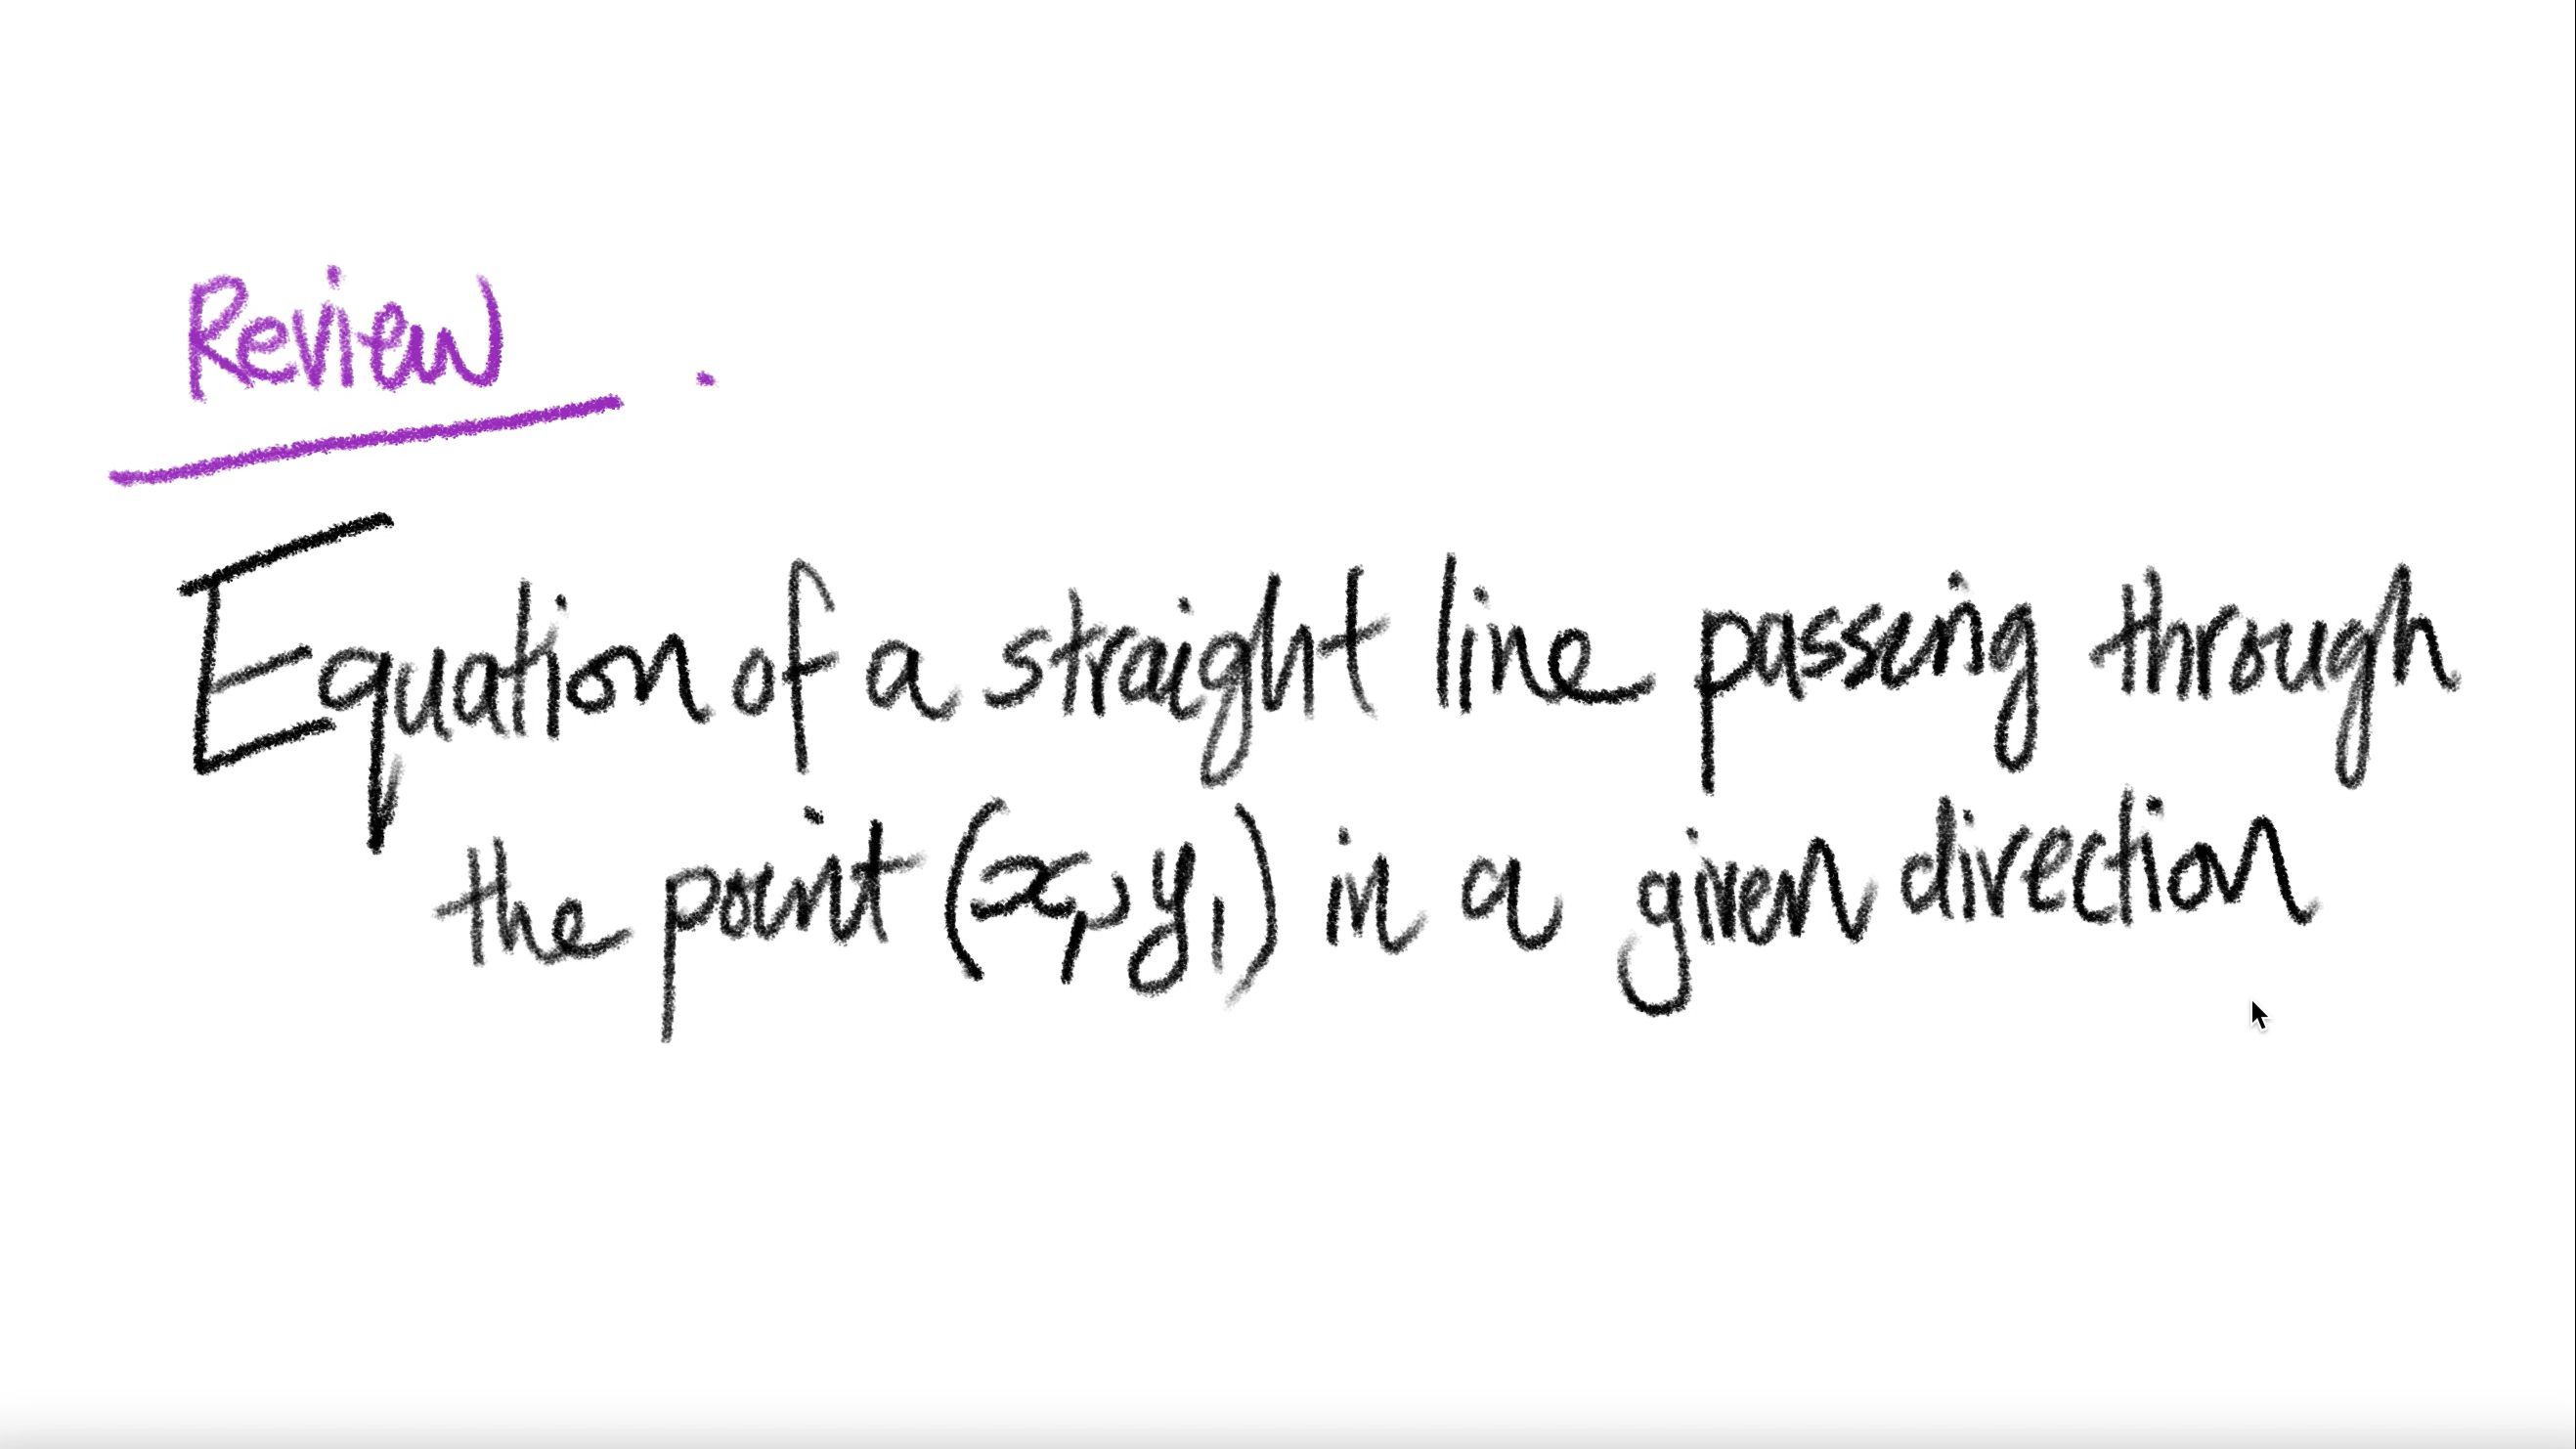 Review .
Equation of a straight line passing through
the point (x₁, y₁) in a given direction